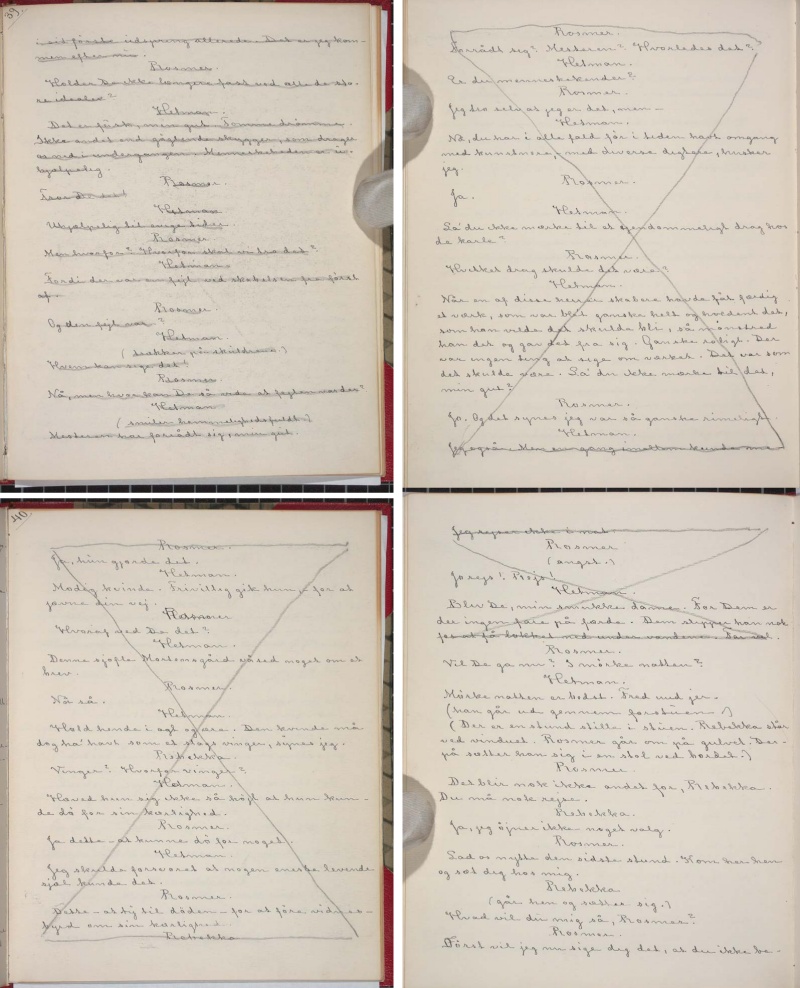 39.
i sit förste udspring allerede. Det ser jeg kan-
men efter nu.
Rosmer.
Holder De ikke længere fast ved alle de sto-
re idealer?
Hetman.
Det er fusk, min gut. Tomme drömme.
Ikke andet end gøglende skygger, som drager
os ned i undergangen. Menneskeheden er u-
hjælpelig.
Rosmer.
Tror De det!
Hetman
Uhjælpelig til evige tider.
Rosmer
Men hvorfor? Hvorfor skal vi tro det?
Hetman.
Fordi der var en fejl ved skabelsen fra först
af.
Rosmer.
Og den fejl var?
Hetman.
(trækker på skuldrene.)
Hvem kan sige det!
Rosmer.
Nå, men hvor kan De så vide at fejlen var der?
Hetman
(smiler hemmelighedsfuldt.)
Mesteren har forrådt sig, min gut.
Rosmer.
Forrådt sig? Mesteren? Hvorledes det?
Hetman.
Er du menneskekender?
Rosmer.
Jeg tror selv at jeg er det, men –
Hetman.
Nå, du har i alle fald för i tiden havt omgang
med kunstnere, med diverse digtere, husker
jeg.
Rosmer.
Ja.
Hetman.
La' du ikke mærke til et ejendommeligt drag hos
de karle?
Rosmer.
Hvilket drag skulde det være?
Hetman.
Når en af disse herrer skabere havde fåt færdig
et værk, som var blet ganske helt og holdent det,
som han vilde det skulde bli, så mönstred
han det og gav det fra sig. Ganske roligt. Der
var ingen ting at sige om værket. Det var som
det skulde være. La' du ikke mærke til det,
min gut?
Rosmer.
Jo. Og det synes jeg var så ganske rimeligt.
Hetman.
Jeg også. Men en gang imellem kunde
40.
Rosmer.
Ja, hun gjorde det.
Hetman.
Modig kvinde. Frivillig gik hun, for at
jævne din vej.
Rosmer
Hvoraf ved De det?
Hetman.
Denne sjofle Mortensgård våsed noget om et
brev.
Rosmer.
Nå så.
Hetman.
Hold hende i agt og ære. Den kvinde må
dog ha' havt som et slags vinger, synes jeg.
Rebekka.
Vinger? Hvorfor vinger?
Hetman.
Haved hun sig ikke så höjt at hun kun-
de dö for sin kærlighed.
Rosmer.
Ja dette – at kunne dö for noget.
Hetman.
Jeg skulde forsvoret at nogen eneste levende
sjæl kunde det.
Rosmer.
Dette – at ty til döden – for at före vidnes-
byrd om sin kærlighed...
Rebekka
Jeg rejser ikke i nat.
Rosmer
(angst.)
Jo rejs! Rejs!
Hetman.
Bliv De, min smukke dame. For Dem er
der ingen fare på færde. Dem slipper han nok
for at få lokket ned under vandene. Far vel.
Rosmer.
Vil De gå nu? I mörke natten?
Hetman.
Mörke natten er bedst. Fred med jer.
(han går ud gennem forstuen.)
(Der er en stund stille i stuen. Rebekka står
ved vinduet. Rosmer går om på gulvet. Der-
på sætter han sig i en stol ved bordet.)
Rosmer.
Det blir nok ikke andet for, Rebekka.
Du må nok rejse.
Rebekka.
Ja, jeg öjner ikke noget valg.
Rosmer.
Lad os nytte den sidste stund. Kom her hen
og sæt dig hos mig.
Rebekka
(går hen og sætter sig.)
Hvad vil du mig så, Rosmer?
Rosmer.
Först vil jeg nu sige dig det, at du ikke be-